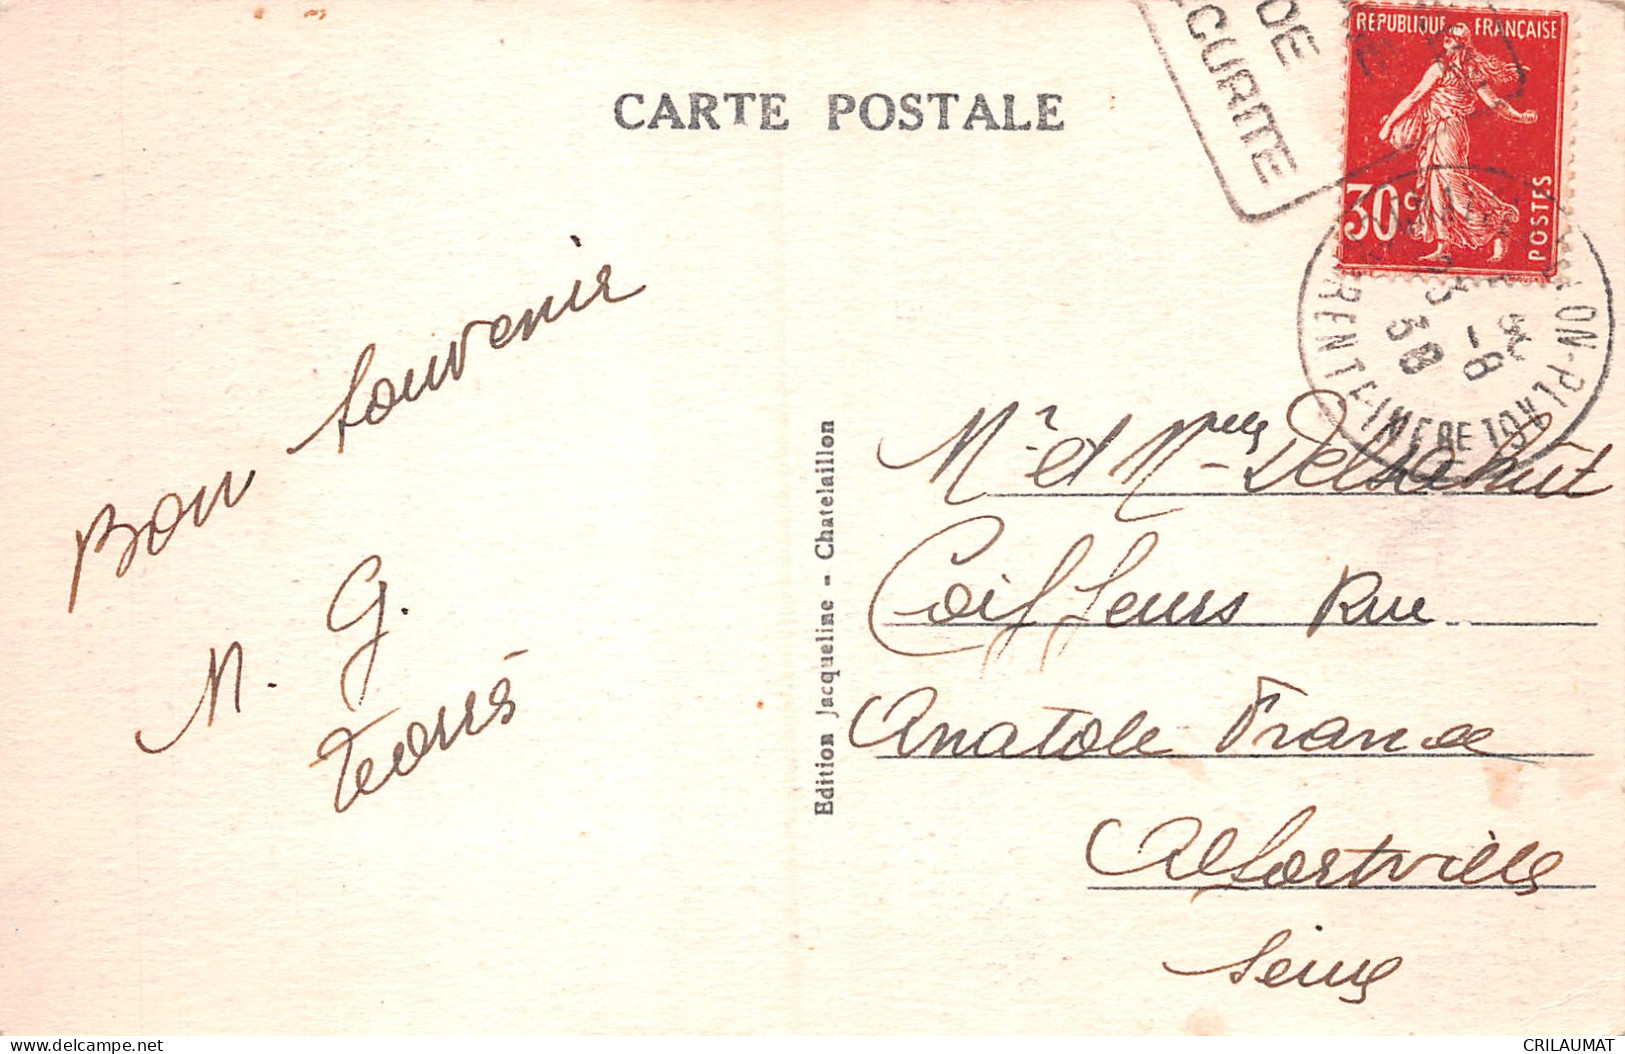 CARTE POSTALE
DE
CURITE
REPUBLIQUE FRANÇAISE
30 c
POSTES
ON-PLAGE
RENTE-INFRE
8
38
Bon souvenir
M. G.
Edition Jacqueline - Chatelaillon
Mr et Mme
Coiffeurs Rue
Anatole France
Alfortville
Seine
CRILAUMAT